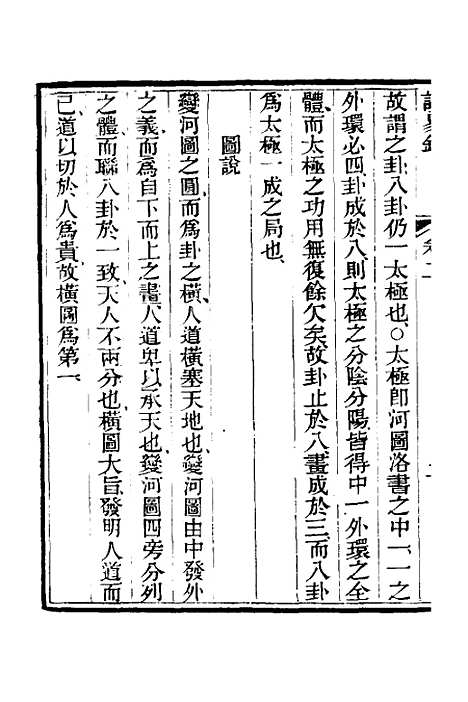 故謂之卦八卦仍一太極也○太極卽河圖洛書之中一一之
外環必四卦成於八則太極之分陰分陽皆得中一外環之全
體而太極之功用無復餘欠矣故卦止於八畫成於三而八卦
爲太極一成之局也
圖說
變河圖之圓而爲卦之橫人道橫塞天地也變河圖由中發外
之義而爲自下而上之畫人道卑以承天也變河圖四旁分列
之體而聯八卦於一致天人不兩分也橫圖大旨發明人道而
已道以切於人爲貴故橫圖爲第一